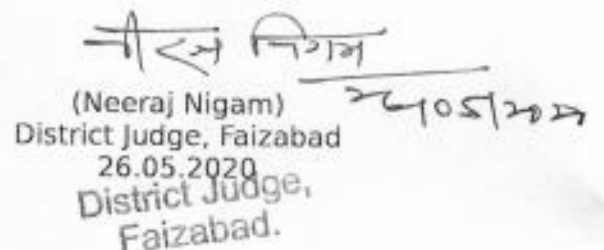 नीरज निगम
26/05/2020
(Neeraj Nigam)
District Judge, Faizabad
26.05.2020
District Judge,
Faizabad.